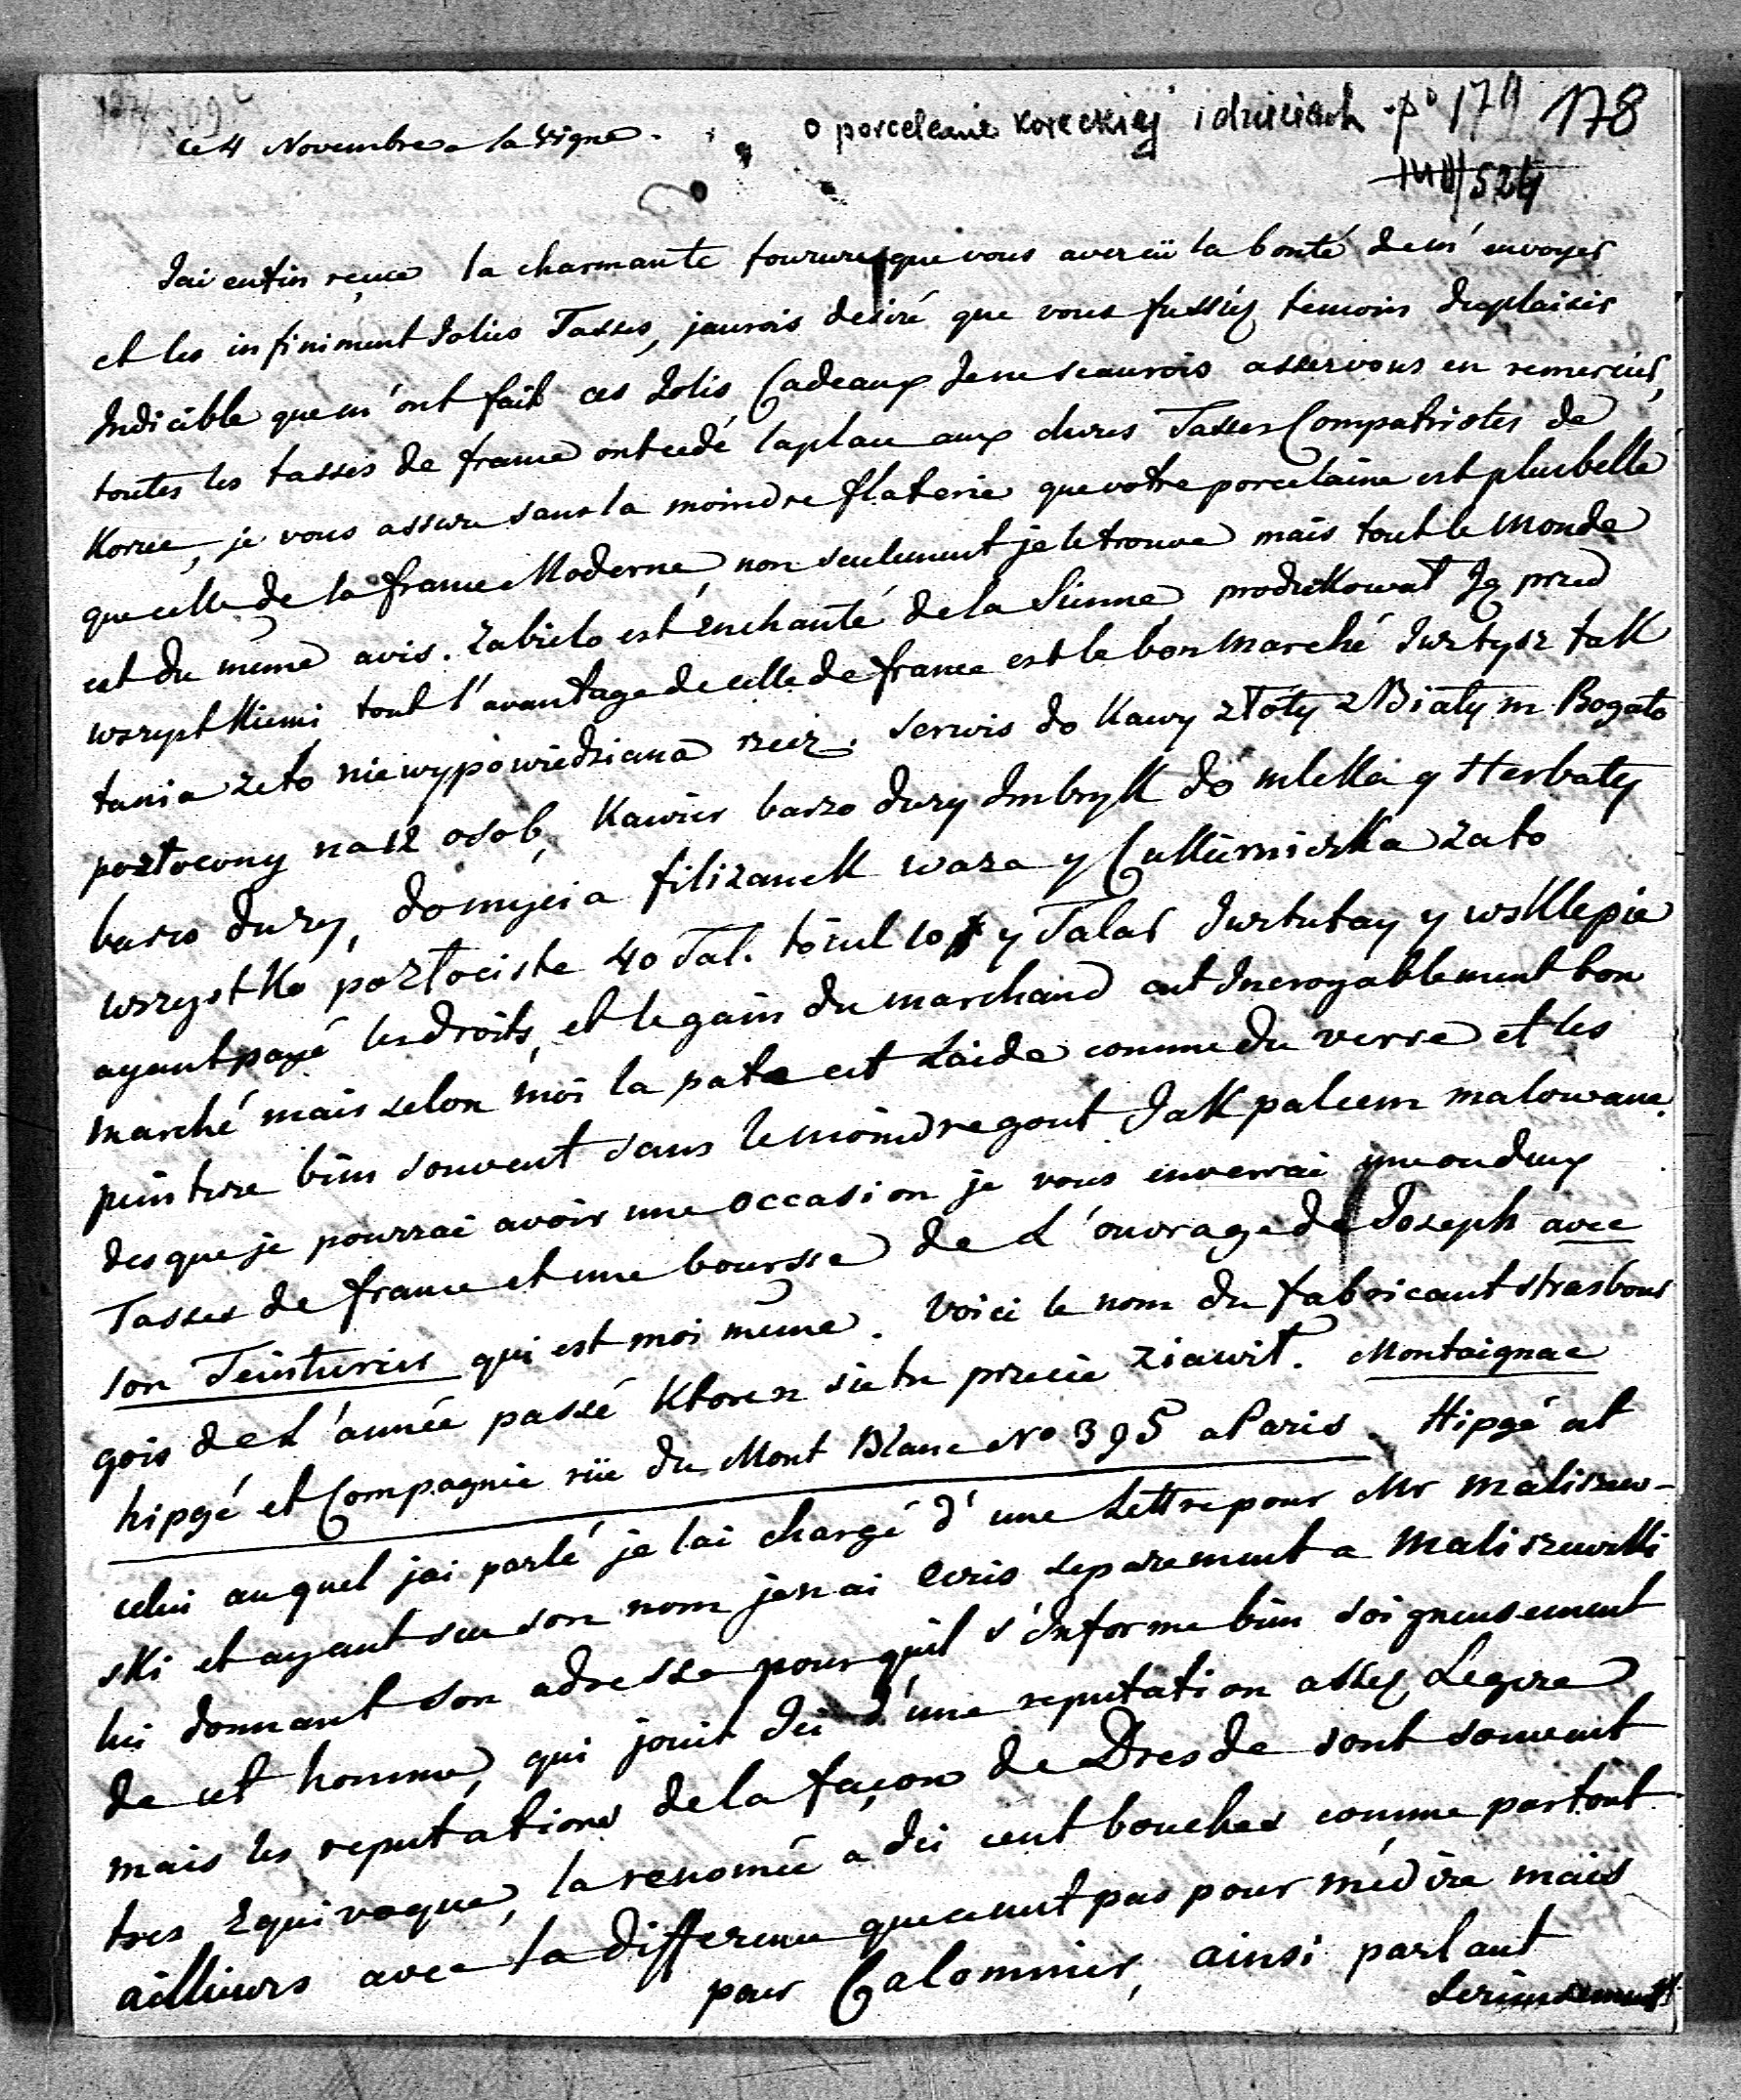 ce 4 Novembre a la Vigne. o porcelanie Koreckiej i dzieciach 178
524
Jai enfin reçue la charmante fourure que vous avez eü la bonté de m'envoyer
et les infiniment Jolies Tasses, jaurois desiré que vous fussiez temoin du plaisir
Indicible que m'ont fait ces Jolis Cadeaux Je ne scaurois assez vous en remercier,
toutes les tasses de france ont cedé la place aux cheres Tasses Compatriotes de
Koree, je vous assure sans la moindre flaterie que votre porcelaine est plus belle
que celle de la france Moderne, non seulement je le trouve mais tout le Monde
est du même avis. Zabielo est Enchanté de la Sienne produkował Ją przed
wszystkiemi tout l'avantage de celle de france est le bon Marché Iusztysz tak
tania że to niewypowiedziana rzecz. Serwis do Kawy złoty z Białym Bogato
pozłocony na 12 osob, Kawier barzo duzy Imbryk do mleka y Herbaty
barzo duzy, do mycia filizanek waza y Cukierniczka za to
wszystko pozłociste 40 Tal. to iest 10 # y Talar Iusz tutay y w sklepie
ayant payé les droits, et le gain du marchand c'est Incroyablement bon
marché mais selon moi la pate est Laide comme du verre et les
peinture bien souvent sans le moindre gout Jak palcem malowane.
des que je pourrai avoir une occasion je vous enverrai une ou deux
Tasses de france et une boursse de L'ouvrage de Joseph avec
son Teinturier qui est moi même. Voici le nom du fabricant strasbour
gois de L'année passé Ktoren sie tu przecie ziawił. Montaignac
hipgé et Compagnie rüe du Mont Blanc No 395 a Paris. Hipgé est
celui au quel jai parlé je lai chargé d'une Lettre pour Mr Maliszew-
ski et ayant seu son nom jen ai ecris separement a Maliszewski
lui donnant son adresse pour quil s'Informe bien soigneusement
de cet homme, qui jouit Ici d'une reputation assez Legere
mais les reputations de la façon de Dresde sont souvent
tres Equivoque, la renomée a Ici cent bouches comme partout
ailleurs avec la difference que cenest pas pour médire mais
pour Calomnier, ainsi parlant
Serieusement